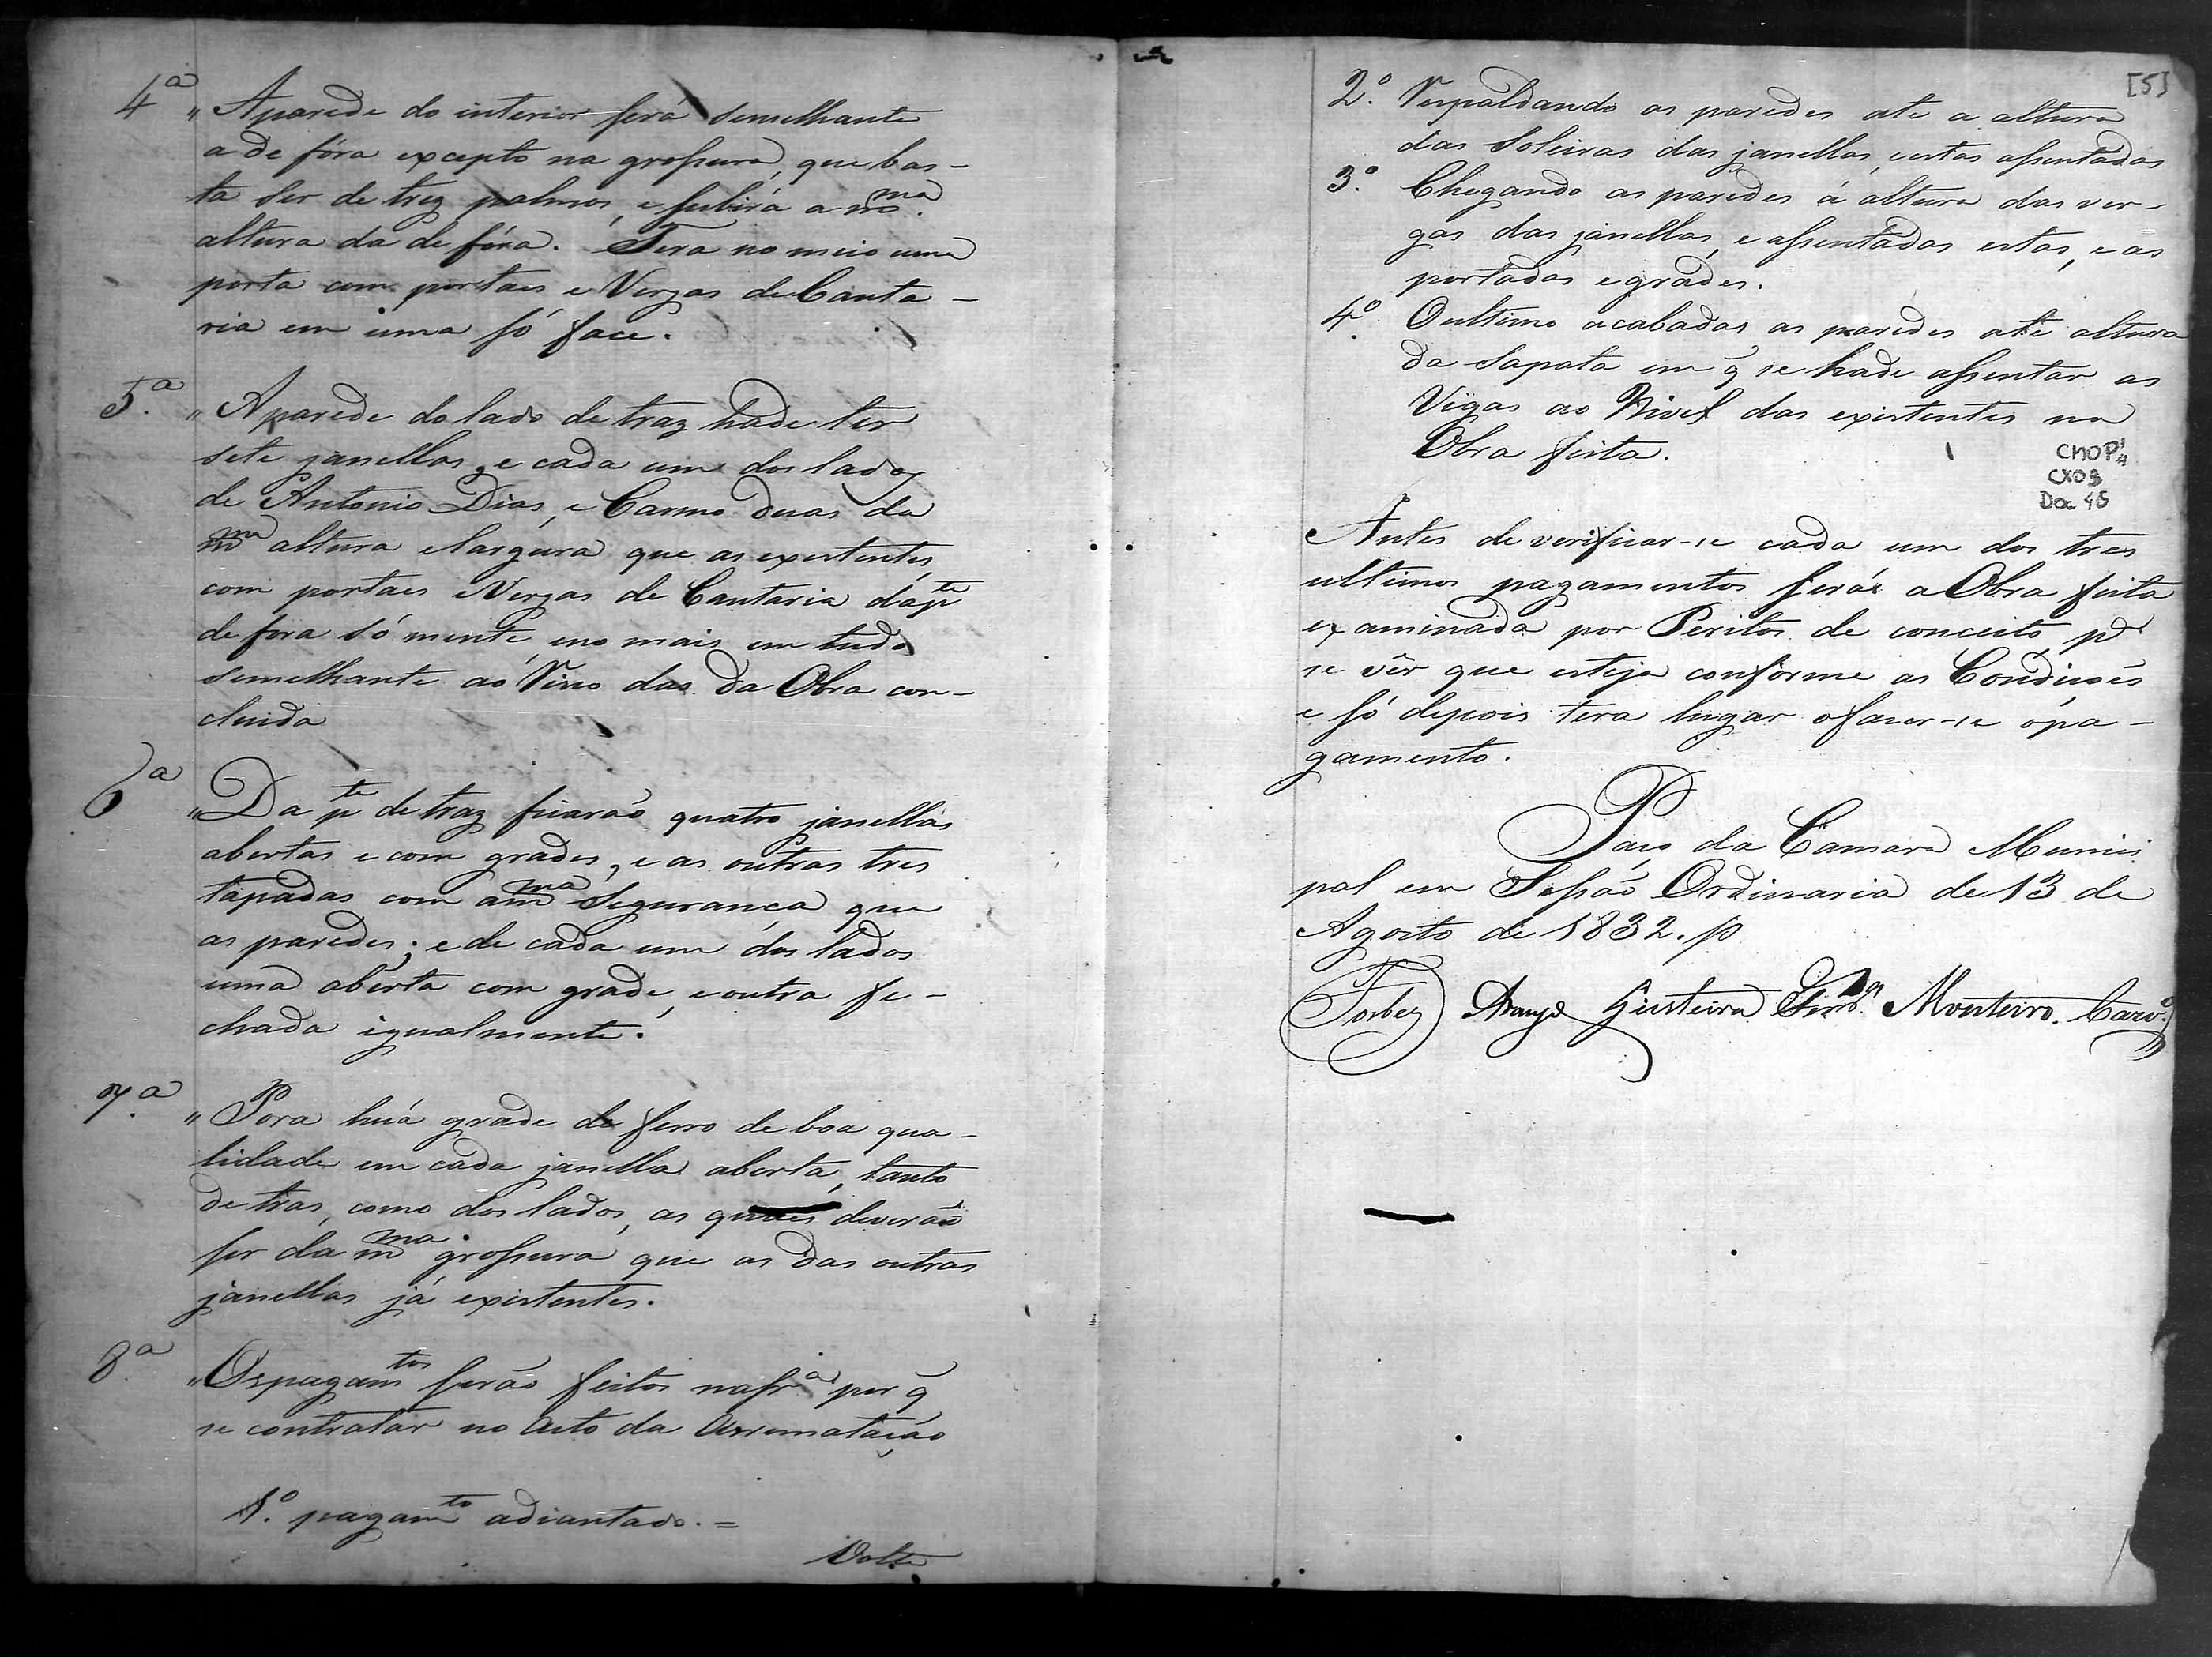 4ª „ Aparede do interior será semelhante
a de fóra excepto na grossura, que bas-
ta ser de trez palmos, e subirá a mma
altura da de fóra. Tera no meio uma
porta com portaes e Vergas de Canta-
ria em uma só face.
5.ª „ Aparede do lado de traz hade ter
sete janellas, e cada um dos lados
de Antonio Dias, e Carmo duas da
mma altura elargura que as existentes,
com portaes eVergas de Cantaria da pte
de fora só mente, eno mais em tudo
semelhante ao Vivo das da Obra con-
cluida
6ª „ Da pte de traz ficarão quatro janellas
abertas e com grades, e as outras tres
tapadas com amma segurança que
as paredes; e de cada um dos lados
uma aberta com grade, e outra fe-
chada igualmente.
7.ª „ Pora huá grade de ferro de boa qua-
lidade em cada janella aberta, tanto
de tras, como dos lados, as quaes deverão
ser da mma grossura que as das outras
janellas já existentes.
8.ª „ Ospagamtos serão feitos nafrª por q̃
se contratar no auto da Arrematação
1.º pagamto adiantado. =
Volte
[5]
2.º Respaldando as paredes ate a altura
das soleiras das janellas, estas assentadas
3.º Chegando as paredes á altura das ver-
gas das janellas, e assentadas estas, e as
portadas e grades.
4.º O ultimo acabadas as paredes até altura
da sapata em q̃ se hade assentar as
Vigas ao Nivel das existentes na
Obra feita.
CMOP
CX03
Doc 45
Antes de verificar-se cada um dos tres
ultimos pagamentos será a Obra feita
examinada por Peritos de conceito, pª
se vêr que esteja conforme as Condições
e só depois tera lugar ofazer-se opa-
gamento.
Paço da Camara Munici
pal em Sessão Ordinaria de 13 de
Agosto de 1832.
Forbes Araujo Giesteira Monteiro. Carvº